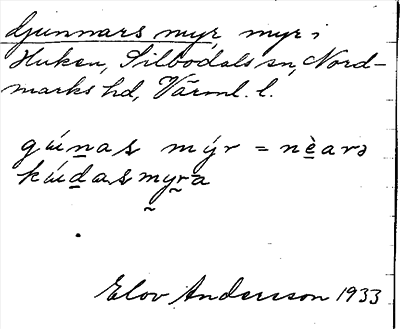 Gunnars myr, myr i
Huken, Silbodals sn, Nord-
marks hd, Värml. l.
gúnas mýr = nèarə
kúdas myra
Elov Andersson 1933